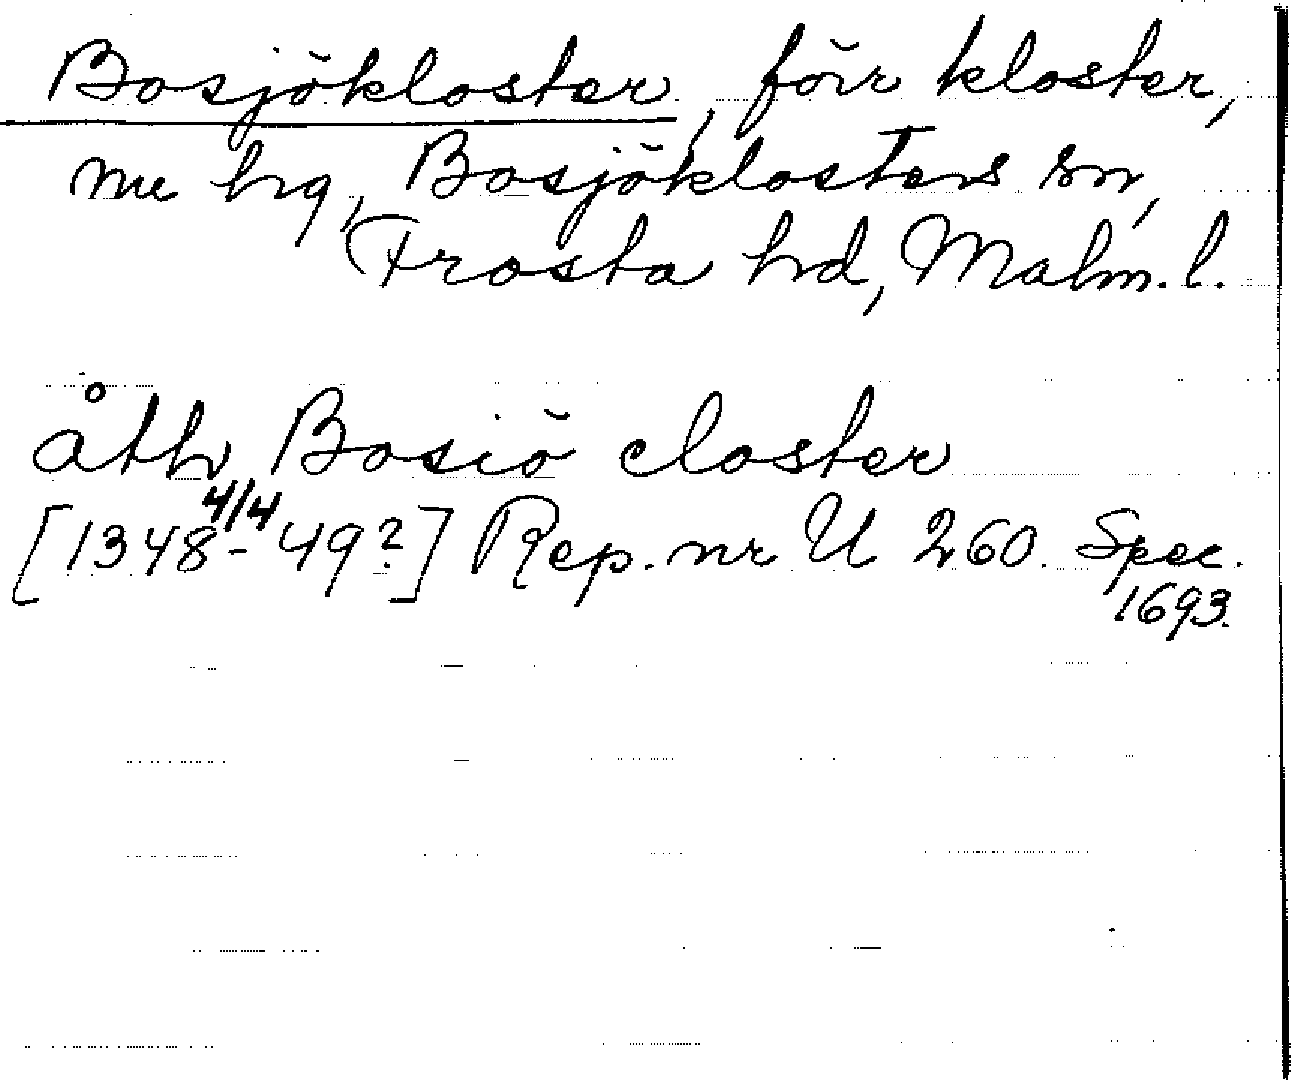 Bosjökloster, förr kloster,
nu hg, Bosjöklosters sn,
Frosta hd, Malm. l.
åth Bosiö closter
4/4
[1348-49?] Rep. nr U 260. Spec.
1693.